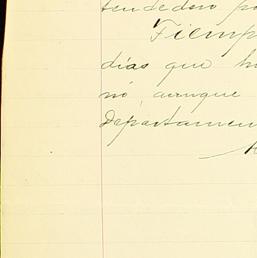 tendedero po
Tiemp
días que h
nó, aunque
Departamen